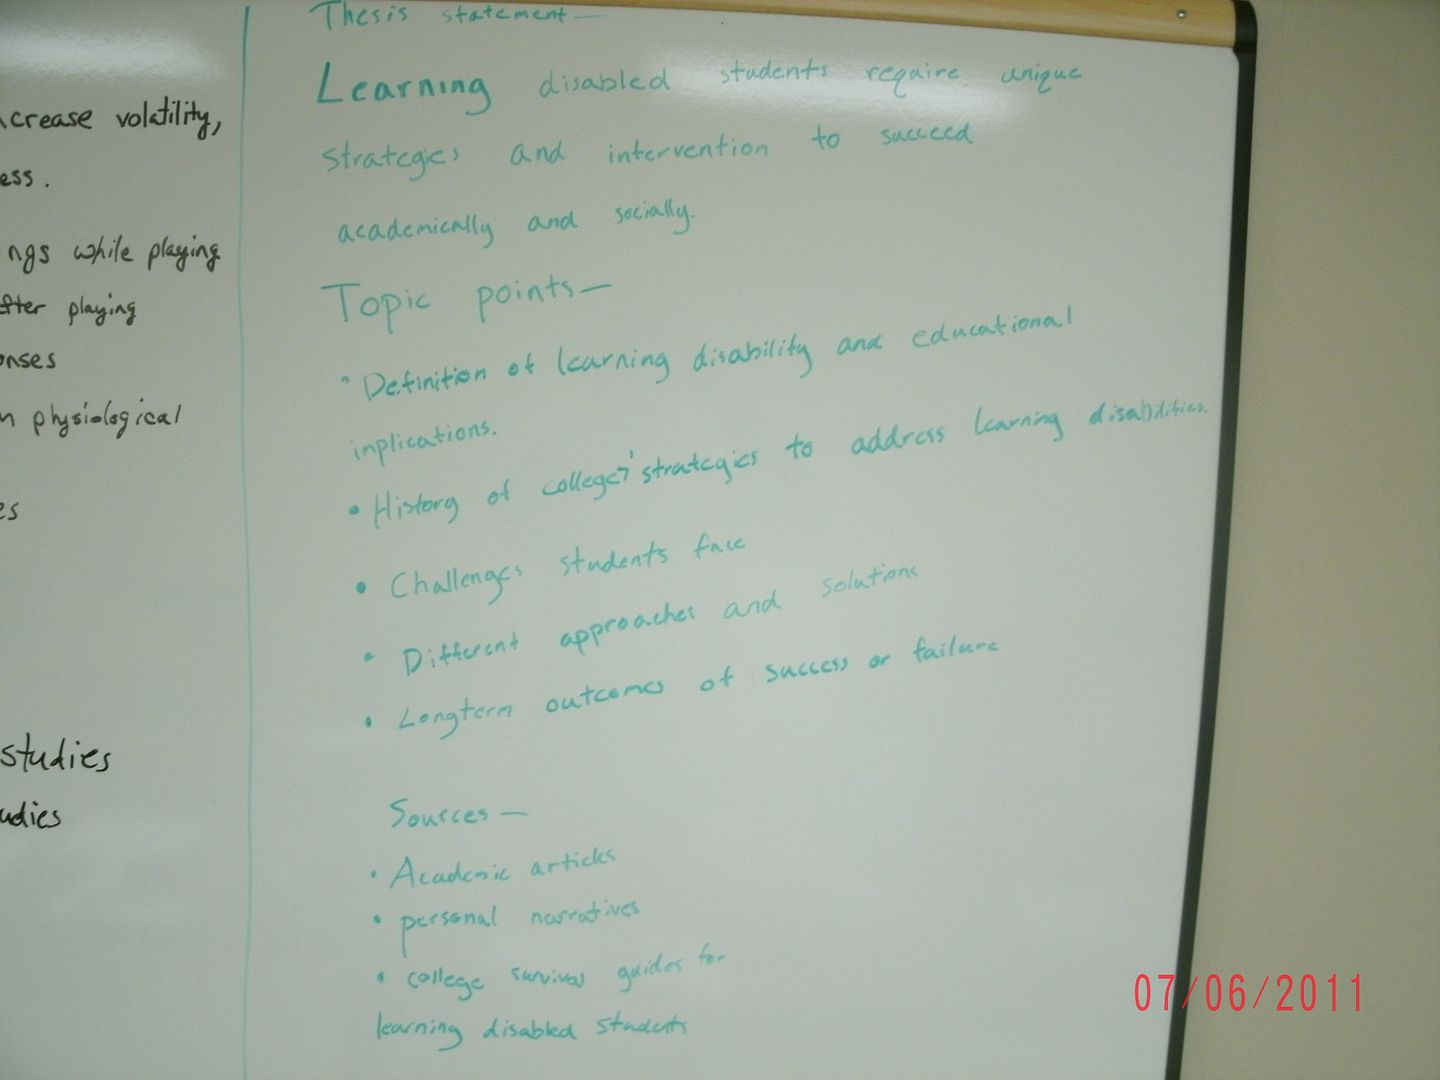 Thesis statement—
Learning disabled students require unique
strategies and intervention to succeed
academically and socially.
Topic points—
• Definition of learning disability and educational
implications.
• History of colleges' strategies to address learning disabilities.
• Challenges students face
• Different approaches and solutions
• Longterm outcomes of success or failure
Sources—
• Academic articles
• personal narratives
• college survival guides for
learning disabled students
ncrease volatility,
ess.
ngs while playing
fter playing
onses
n physiological
es
studies
udies
07/06/2011